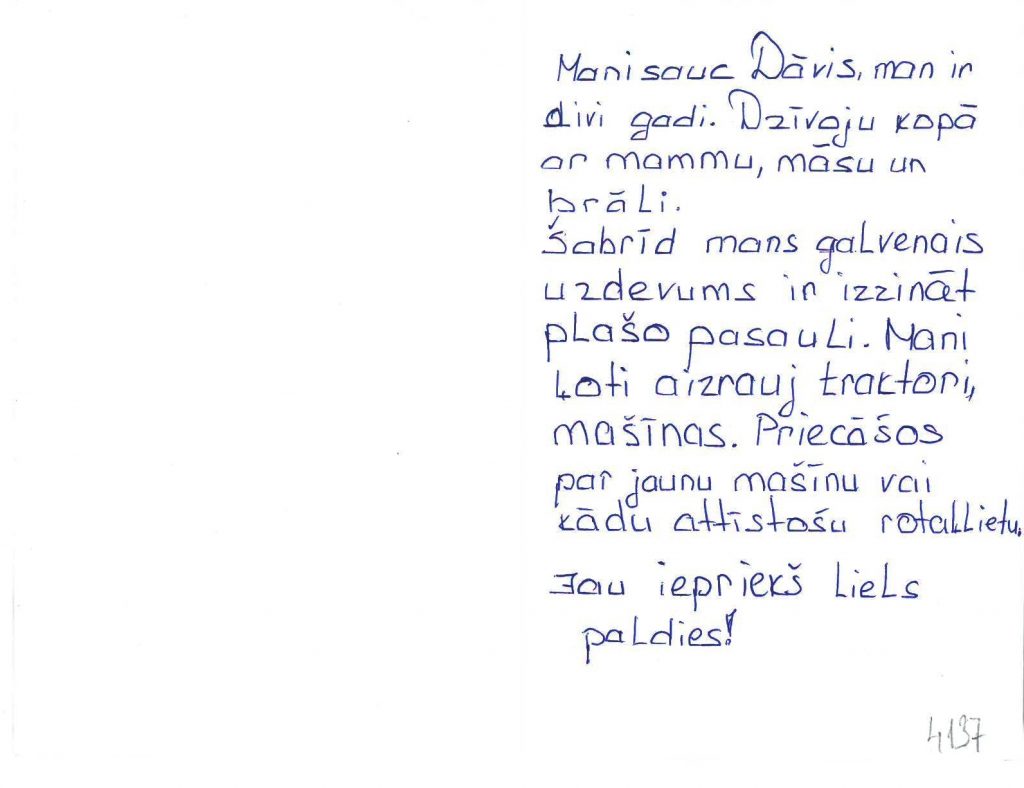 Mani sauc Dāvis, man ir
divi gadi. Dzīvoju kopā
ar mammu, māsu un
brāli.
Šabrīd mans galvenais
uzdevums ir izzināt
plašo pasauli. Mani
Ļoti aizrauj traktori,
mašīnas. Priecāšos
par jaunu mašīnu vai
kādu attīstošu rotaļlietu.
Jau iepriekš liels
paldies!
4137